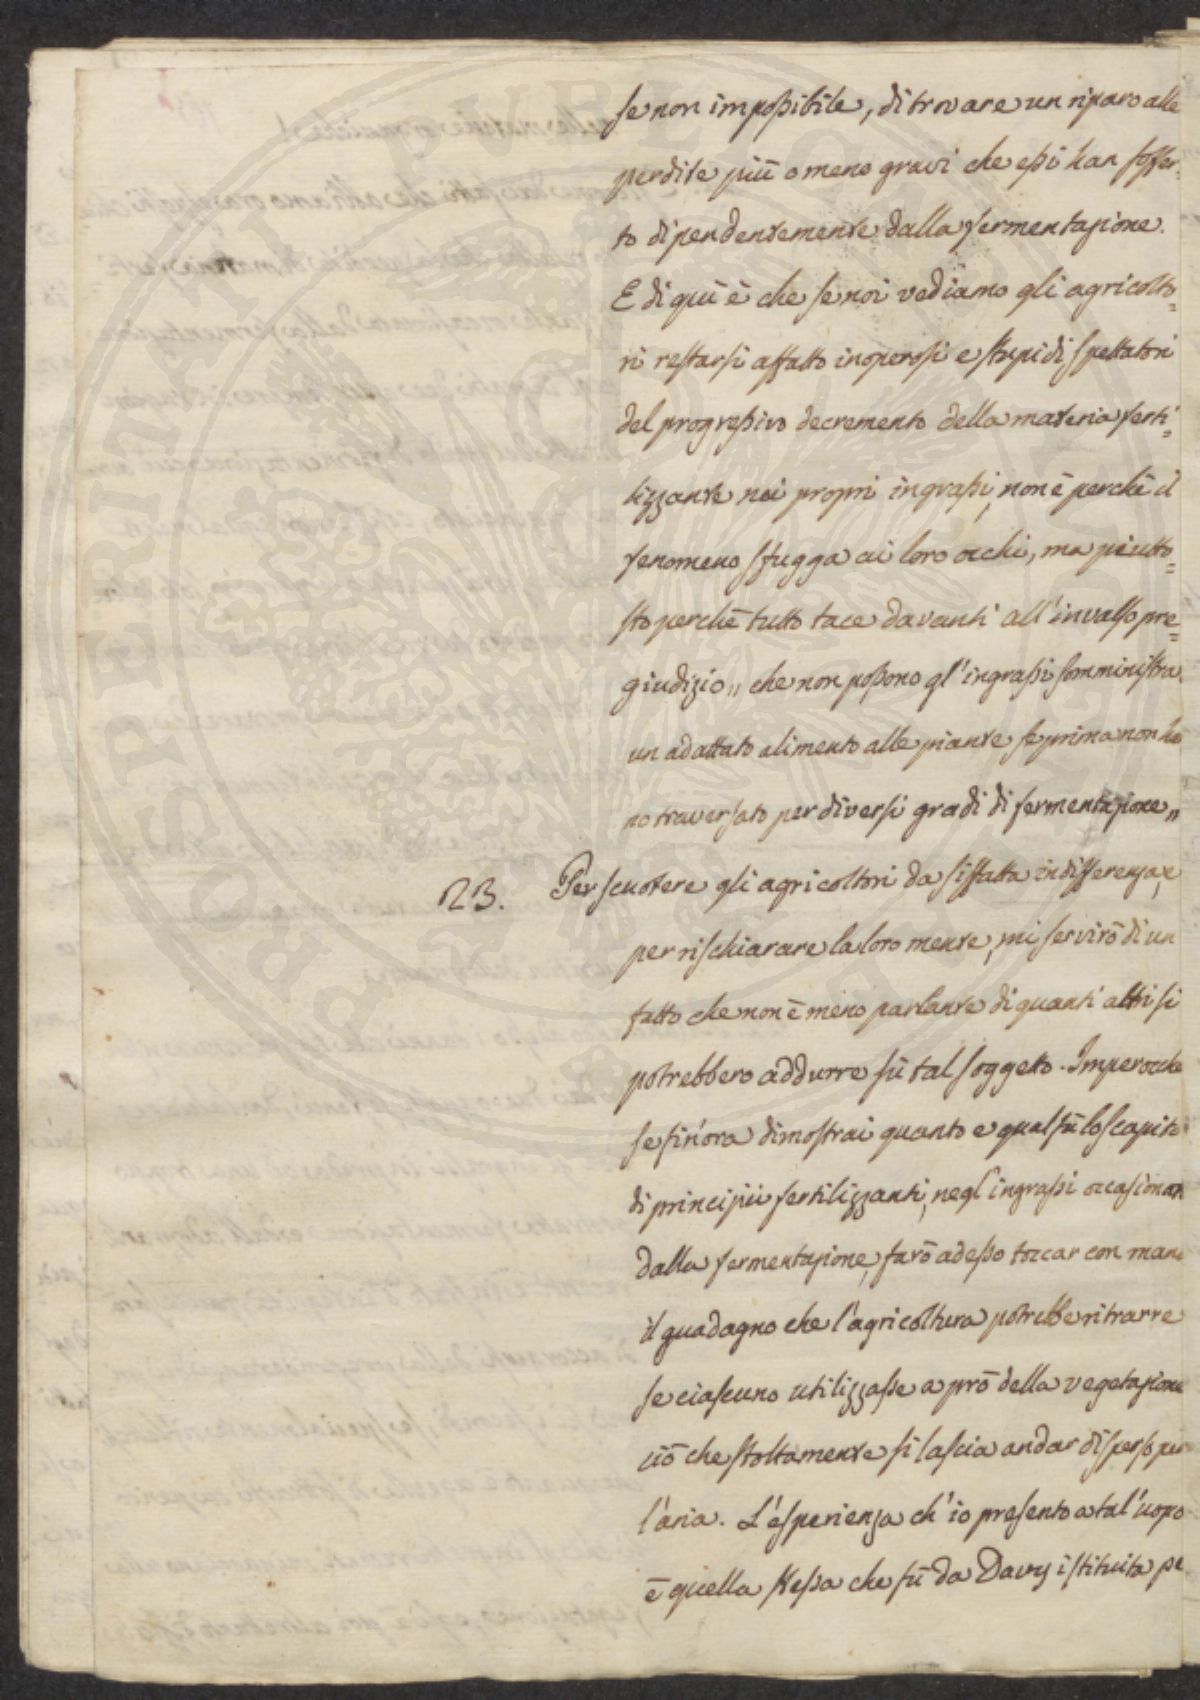 se non impossibile, di trovare un riparo alle
perdite più o meno gravi che essi han soffer=
to dipendentemente dalla fermentazione.
E di quì è che se noi vediamo gli agricolto=
ri restarsi affatto inoperosi e stupidi spettatori
del progressivo decremento della materia ferti=
lizzante nei propri ingrassi, non è perchè il
fenomeno sfugga ai loro occhi, ma piutto=
sto perchè tutto tace davanti all'invalso pre=
giudizio „ che non possono gl'ingrassi somministra
un adattato alimento alle piante se prima non han
no traversato per diversi gradi di fermentazione „
23. Per scuotere gli agricoltori da siffatta indifferenza, e
per rischiarare la loro mente, mi servirò di un
fatto che non è meno parlante di quanti altri si
potrebbero addurre sù tal soggetto. Imperocchè
se sin'ora dimostrai quanto e qual fù lo scapito
di principii fertilizzanti, negl'ingrassi occasionat
dalla fermentazione, farò adesso toccar con mano
il guadagno che l'agricoltura potrebbe ritrarre
se ciascuno utilizzasse a prò della vegetazione
ciò che stoltamente si lascia andar disperso per
l'aria. L'esperienza ch'io presento a tal'uopo
è quella stessa che fù da Davy istituita pe
PROSPERITATI PUBLICAE